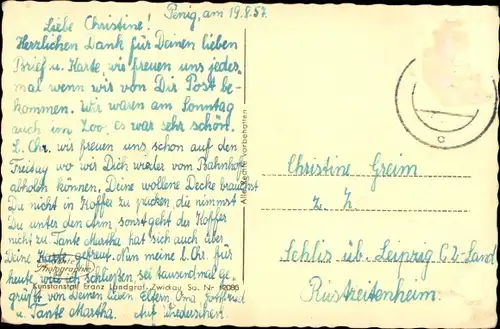 Penig, am 19.8.57.
Liebe Christine!
Herzlichen Dank für Deinen lieben
Brief u. Karte wir freuen uns jedes
mal wenn wir von Dir Post be-
kommen. Wir waren am Sonntag
auch im Zoo, es war sehr schön.
L. Chr. wir freuen uns schon auf den
Freitag wo wir Dich wieder vom Bahnhof
abholen können, Deine wollene Decke brauchst
Du nicht in Koffer zu packen, die nimmst
Du unter den Arm sonst geht der Koffer
nicht zu. Tante Martha hat sich auch über
Deine Karte gefreut. Nun meine l. Chr. für
heute will ich schließen, sei tausendmal ge-
grüßt von Deinen lieben Eltern Oma,
u. Tante Martha. Auf Wiedersehen.
Photographie
Kunstanstalt Franz Landgraf, Zwickau Sa. Nr.
Alle Rechte vorbehalten
Christine Greim
z. Z.
Schlis üb. Leipzig C2-Land